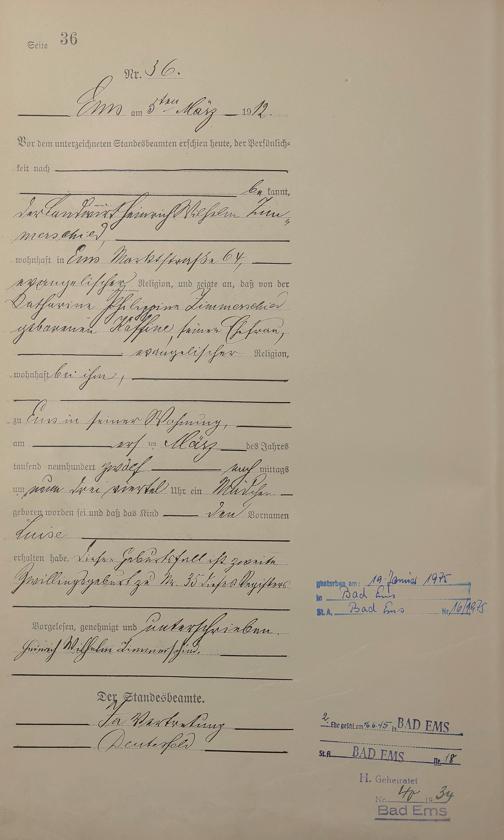 Seite 36
Nr. 36.
Ems am 5ten März 1912.
Vor dem unterzeichneten Standesbeamten erschien heute, der Persönlich-
keit nach
bekannt,
der Landwirt Heinrich Wilhelm Zim-
merschied,
wohnhaft in Ems Marktstraße 64,
evangelischer Religion, und zeigte an, daß von der
Katharine Philippine Zimmerschied
geborenen seiner Ehefrau,
evangelischer Religion,
wohnhaft bei ihm,
zu Ems in seiner Wohnung,
am ersten März des Jahres
tausend neunhundert zwölf nachmittags
um neun drei viertel Uhr ein Mädchen
geboren worden sei und daß das Kind den Vornamen
Luise
erhalten habe. Dieser Geburtsfall ist zweite
Zwillingsgeburt zu Nr. 35 dieses Registers.
Vorgelesen, genehmigt und unterschrieben.
Heinrich Wilhelm Zimmerschied.
Der Standesbeamte.
In Vertretung
gestorben am: 19. Januar 1975
in Bad Ems
St. A. Bad Ems Nr. 16/1975
2. Eheschl. am in BAD EMS
St. A. BAD EMS Nr. 18
H. Geheiratet
Nr. 40 1934
Bad Ems